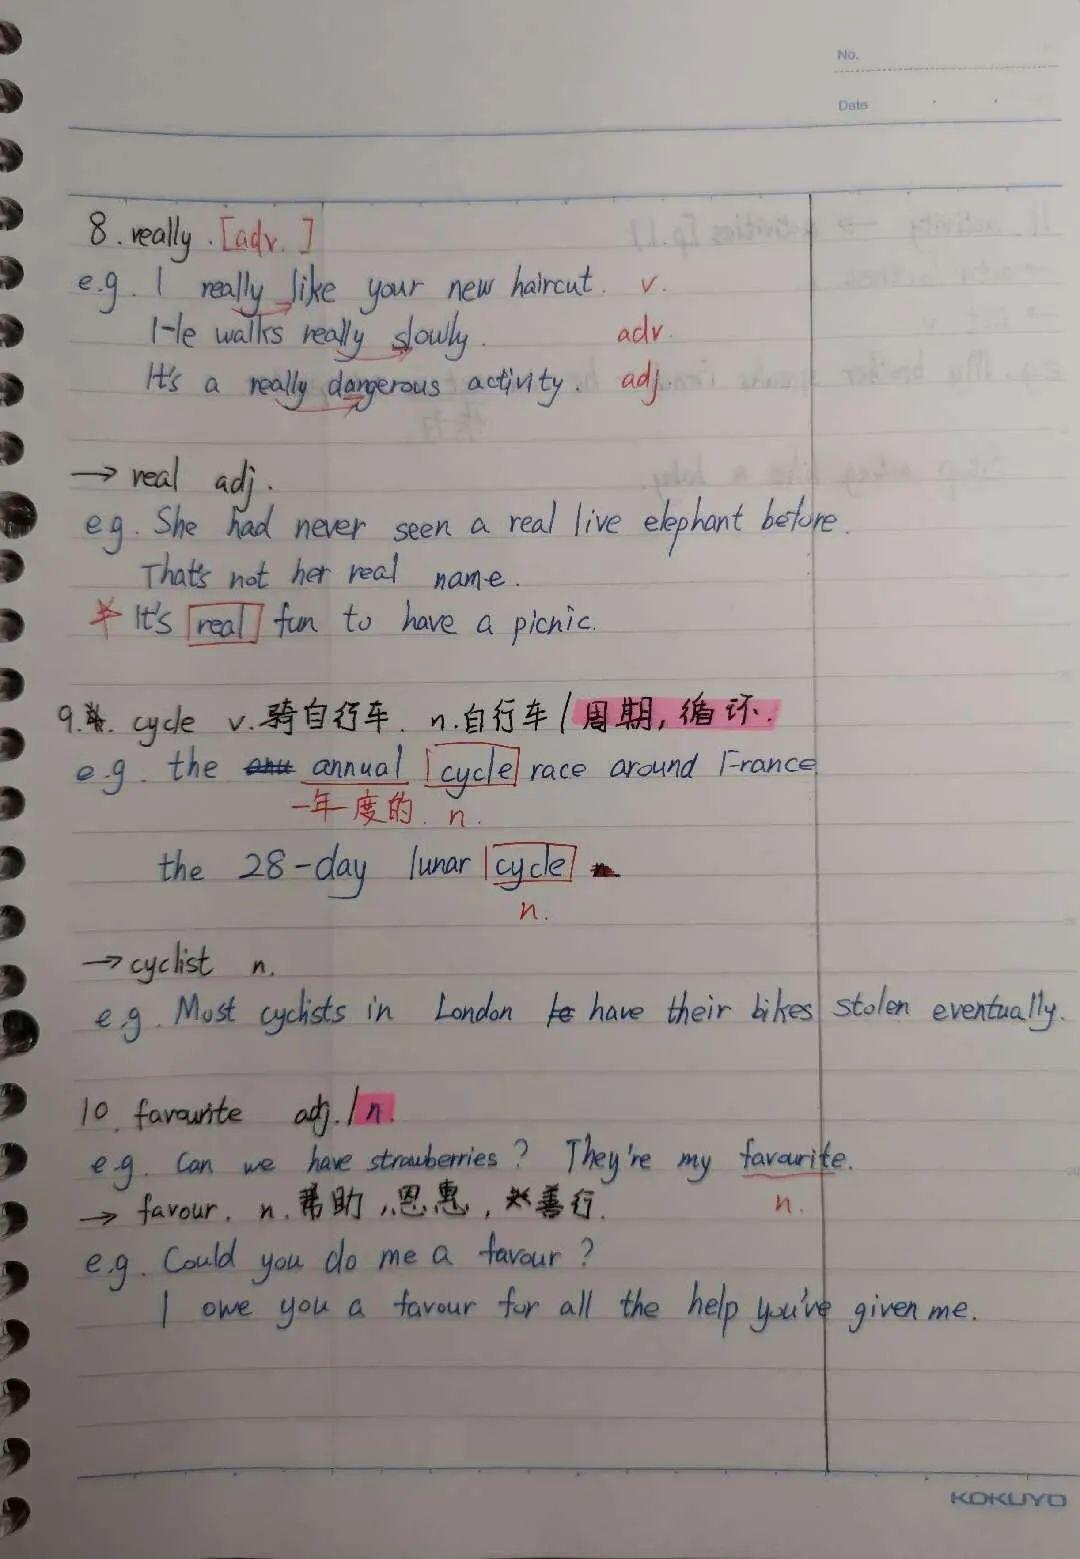 No.
Date
8. really. [adv.]
e.g. I really like your new haircut. v.
He walks really slowly. adv.
It's a really dangerous activity. adj.
→ real adj.
e.g. She had never seen a real live elephant before.
That's not her real name.
* It's real fun to have a picnic.
9. cycle v.骑自行车. n.自行车/周期,循环.
e.g. the annual cycle race around France
一年一度的. n.
the 28-day lunar cycle
n.
→ cyclist n.
e.g. Most cyclists in London have their bikes stolen eventually.
10. favourite adj./n.
e.g. Can we have strawberries? They're my favourite.
n.
→ favour. n.帮助,恩惠,善行.
e.g. Could you do me a favour?
I owe you a favour for all the help you've given me.
KOKUYO